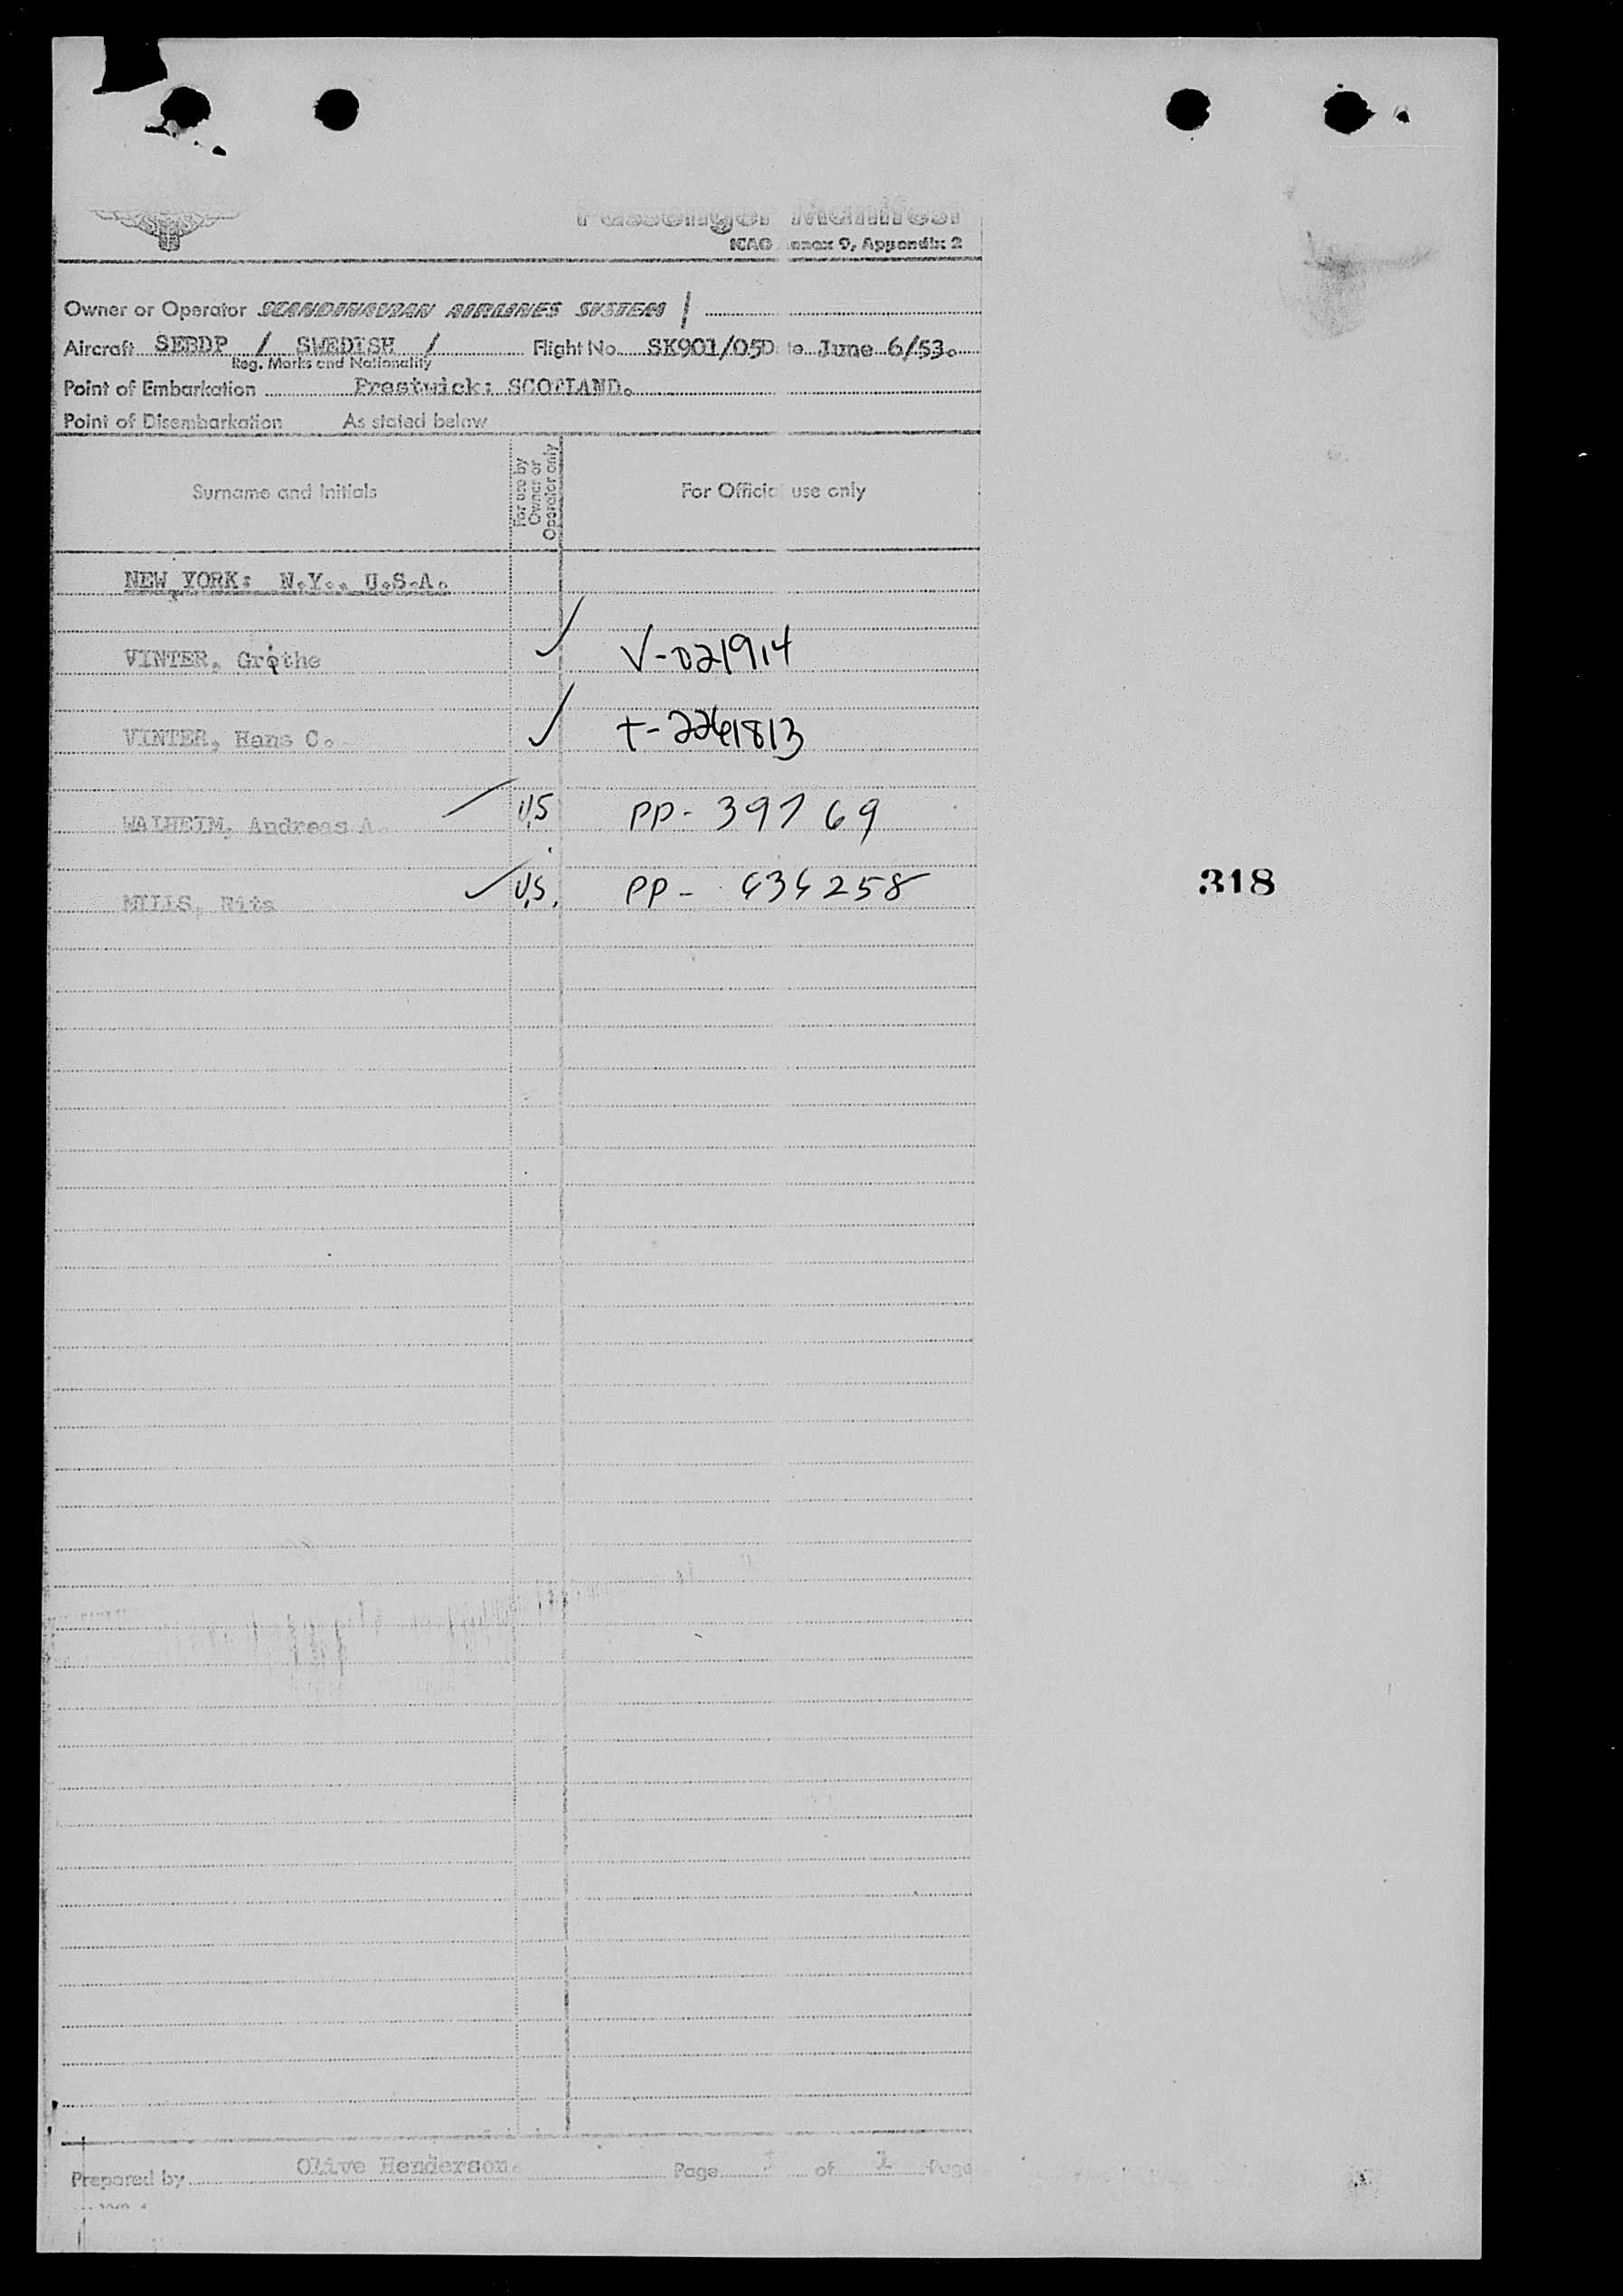 Passenger Manifest
ICAO Annex 9, Appendix 2
Owner or Operator SCANDINAVIAN AIRLINES SYSTEM /
Aircraft SEBDP / SWEDISH / Flight No. SK901/05 Date June 6/53.
Reg. Marks and Nationality
Point of Embarkation Prestwick: SCOTLAND.
Point of Disembarkation As stated below
Surname and Initials For use by Owner or Operator only For Official use only
NEW YORK: N.Y., U.S.A.
VINTER, Grethe V-021914
VINTER, Hans C.
WALHEIM, Andreas A. U.S PP-39769
MILLS, Rita U.S. PP-434258
318
Prepared by Olive Henderson. Page 1 of 1 Page